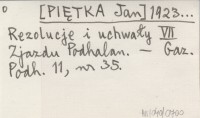 [PIĘTKA Jan] 1923...
Rezolucje i uchwały VII
Zjazdu Podhalan. — Gaz.
Podh. 11, nr 35.